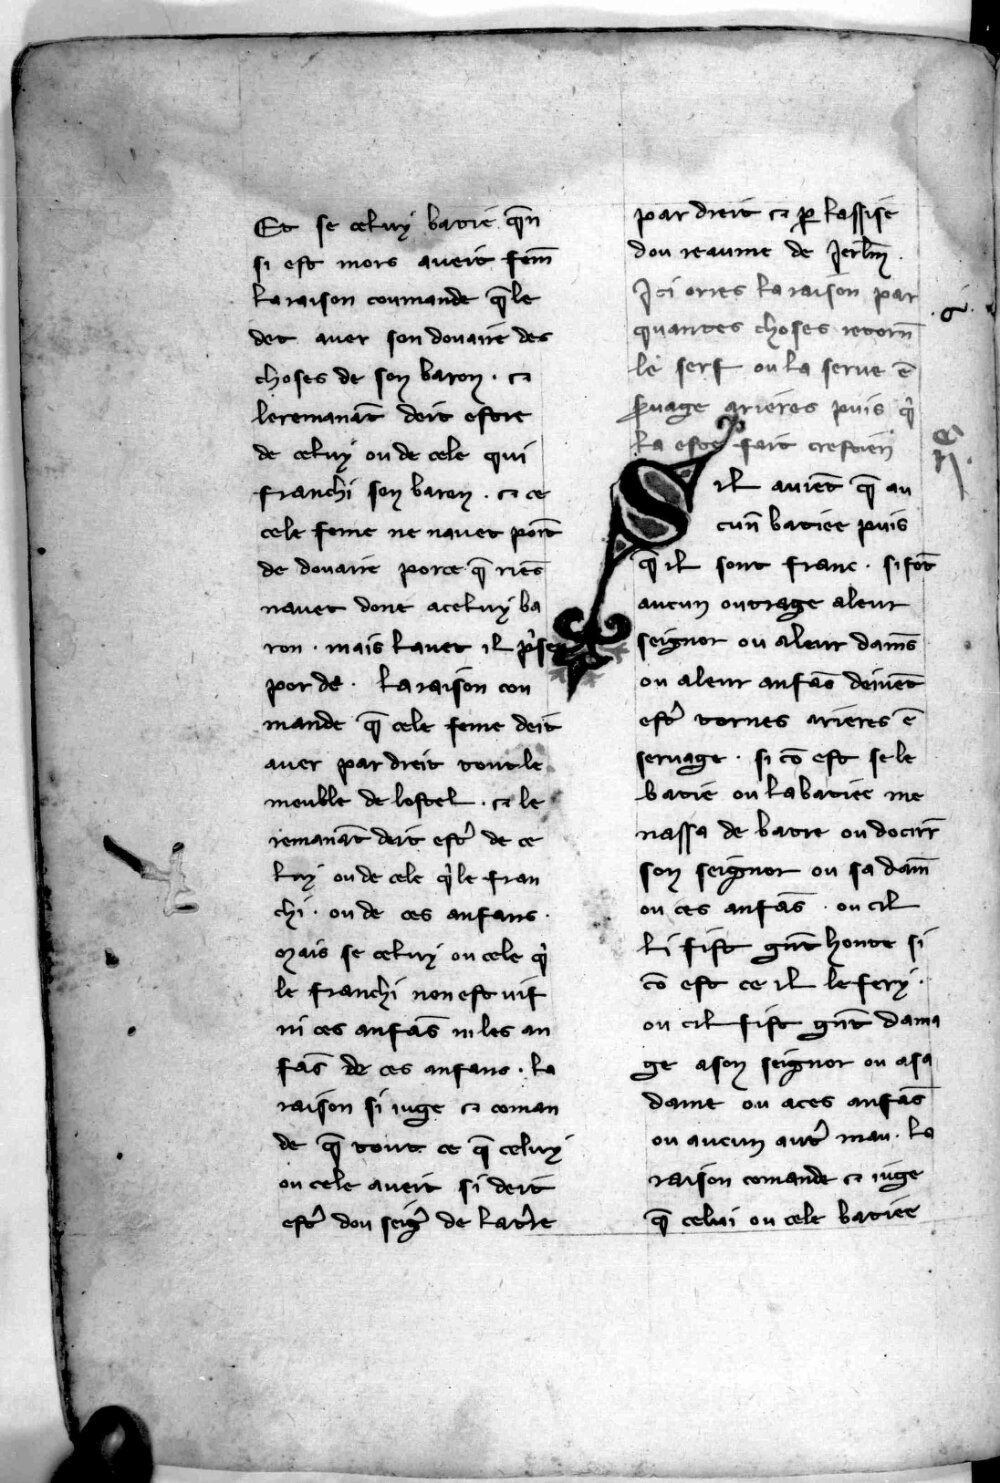 Et se celuy batie qn̄
si est mors aveit fem̄
la raison coumande q̄ le
det aver son douaire des
choses de son baron . ⁊
le remanāt deit estre
de celuy ou de cele qui
franchi son baron . ⁊ ce
cele feme ne navet poīt
de douaire porce q̄ riēs
navet done a celuy ba
ron . mais lavet il p̾se
por de . la raison cou
mande q̄ cele feme deit
aver par dreit tout le
meuble de lostel . ⁊ le
remanāt deit est̾ de ce
luy ou de cele q̾ le fran
chi . ou de ces anfans .
Mais se celuy ou cele q̾
le franchi non est vif
ni ces anfās ni les an
fās de ces anfans . la
raison si iuge ⁊ coman
de q̄ tout ce q̄ celuy
ou cele aveit si deit
est̾ dou seig̾ de la t̾re
par dreit ⁊ ꝑ lassise
dou reaume de Jerl̄m .
Ici orres la raison par
quantes choses retorn̄
le serf ou la serve ē
s̾vage arieres puis q̾
la este fait crestien
S il aviēt q̄ au
cun̄ batiee puis
q̄ il sont franc . si fōt
aucun outrage a leur
seignor ou a leur damēs
ou a leur anfās deivēt
est̾ tornes arieres ē
servage . si cō est se le
batie ou la batiee me
nassa de batre ou docirr̄
son seignor ou sa dam̄
ou ces anfās . ou cil
li fist gn̄t honte si
cō est ce il le fery .
ou cil fist gn̄t dama
ge a son seignor ou a sa
dame ou a ces anfās
ou aucun aut̾ mau . la
raison comande ⁊ iuge
q̄ celui ou cele batiee